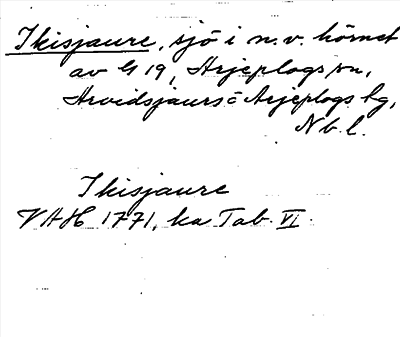 Ikisjaure, sjö i n.v. hörnet
av G 19, Arjeplogs sn,
Arvidsjaurs o Arjeplogs tg,
Nb. l.
Ikisjaure
VAH 1771, ka Tab. VI.